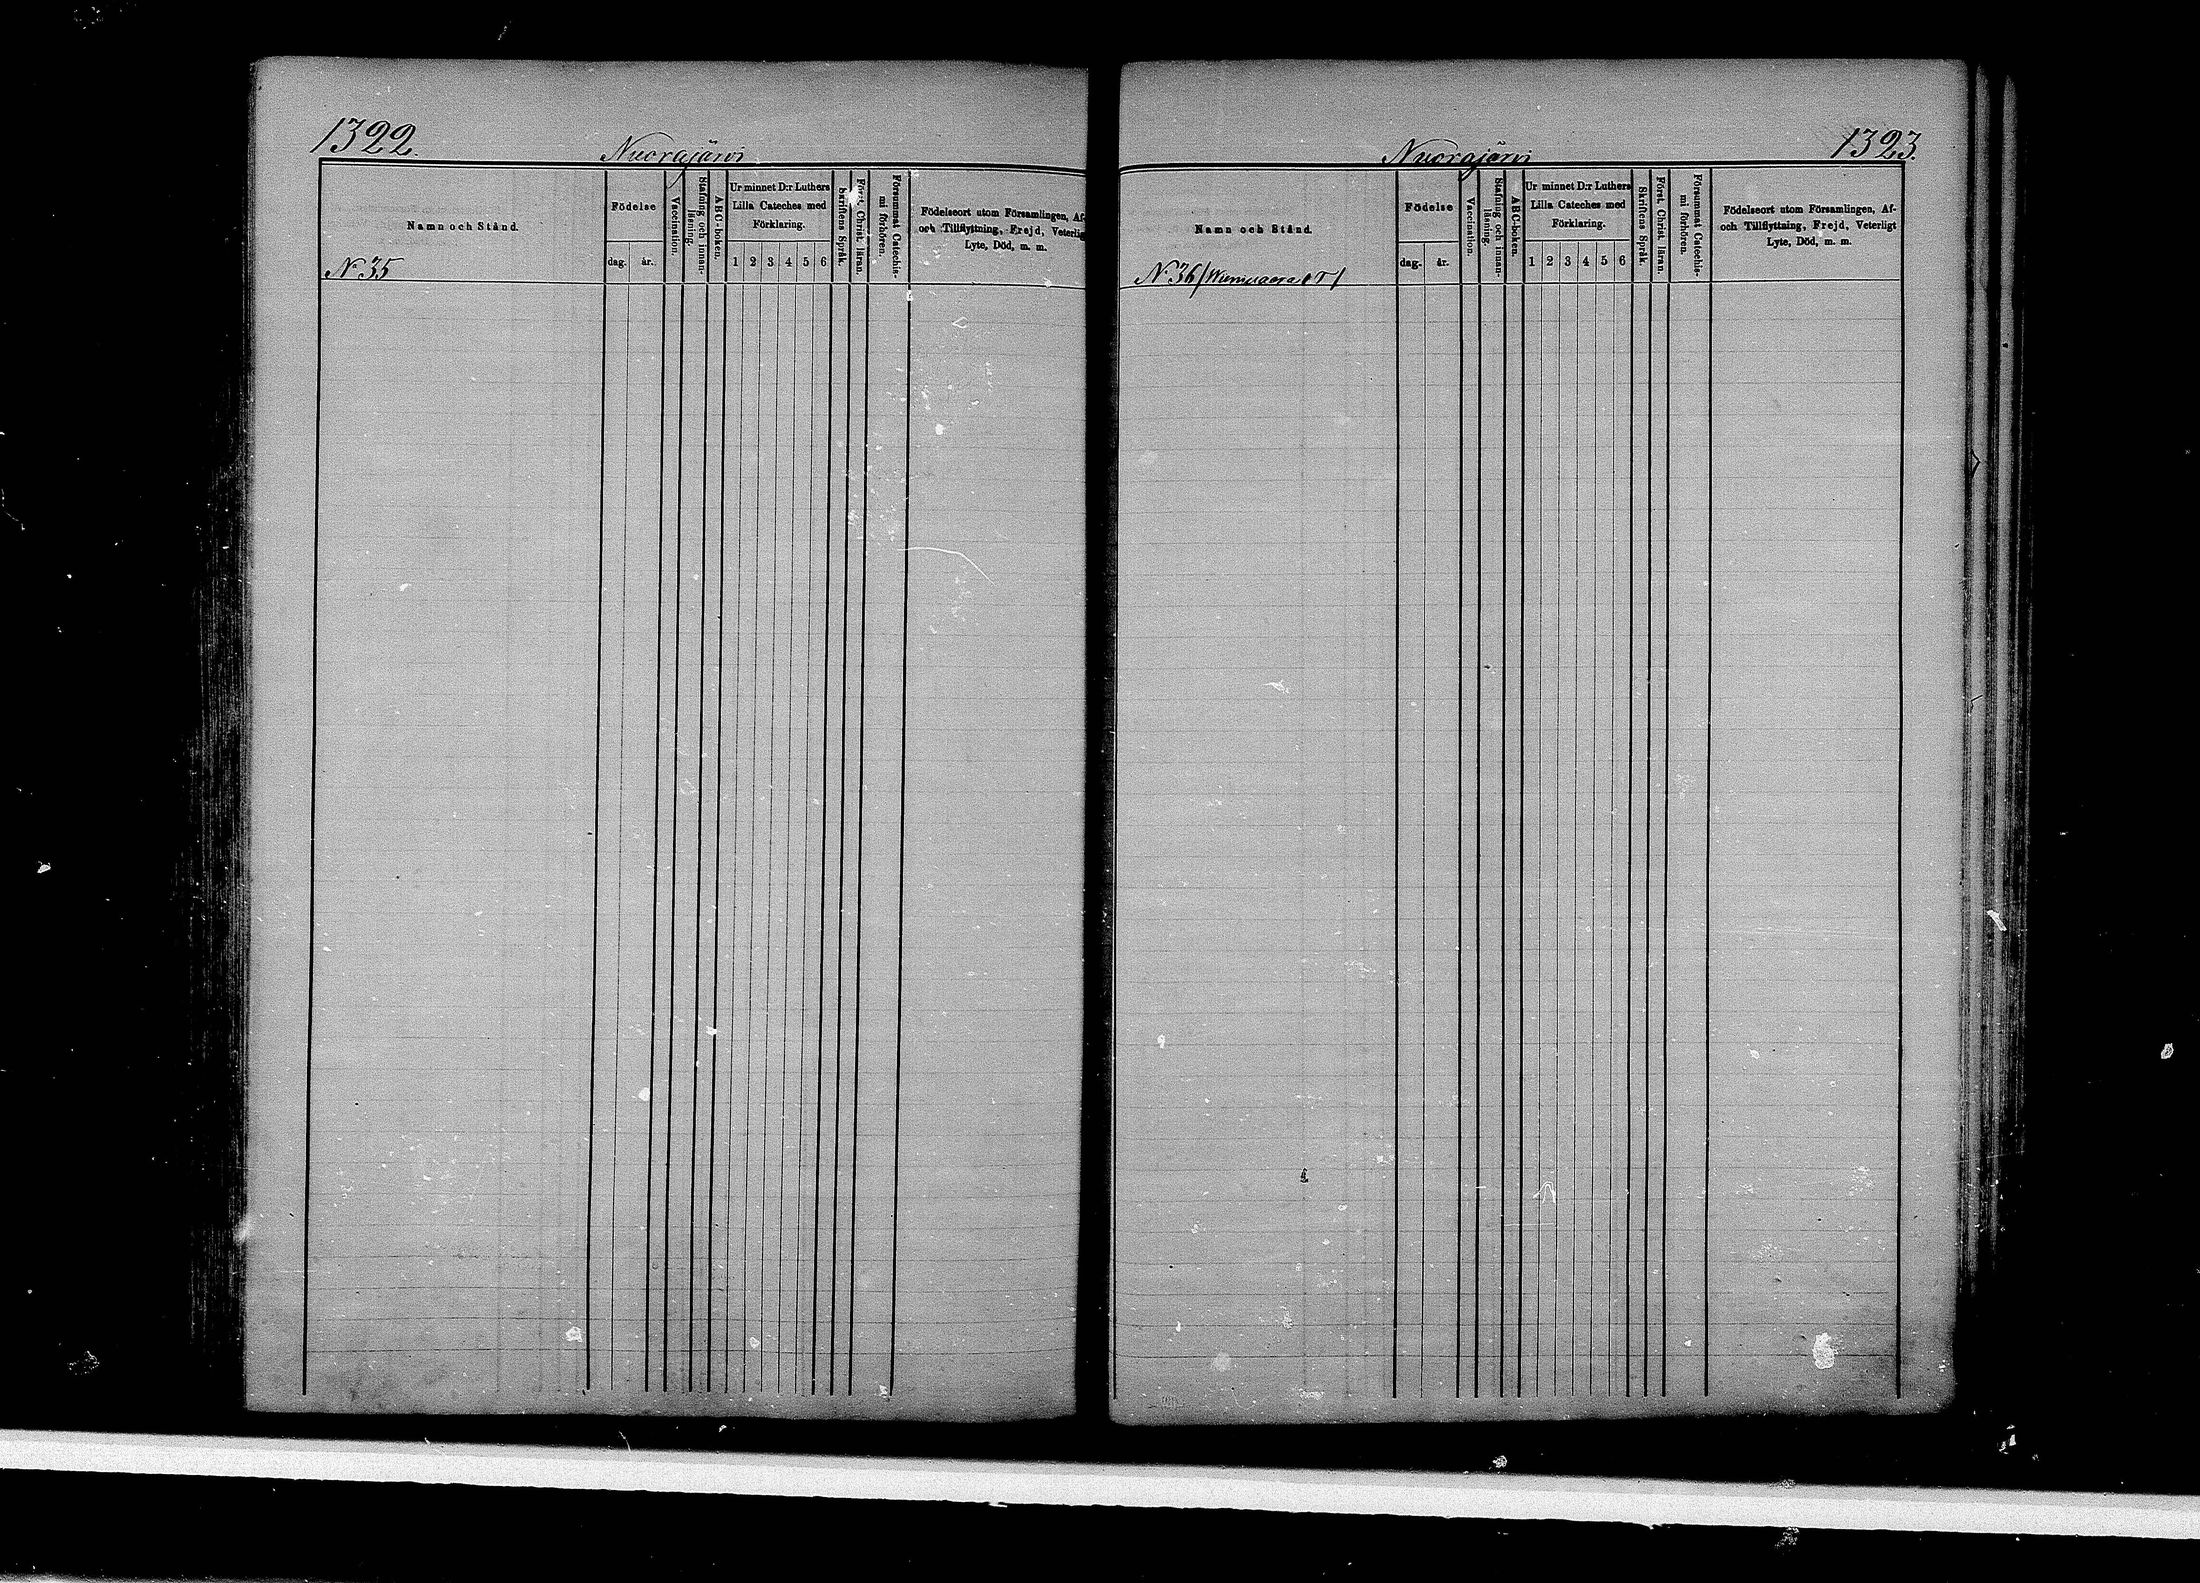 1322.
Nuorajärvi
Namn och Stånd.
Födelse
dag.
år.
Vaccination.
Stafning och innan-
läsning.
ABC-boken.
Ur minnet D:r Luthers
Lilla Cateches med
Förklaring.
1 2 3 4 5 6
Skriftens Språk.
Först. Christ. läran.
Försummat Catechis-
mi förhören.
Födelseort utom Församlingen, Af-
och Tillflyttning, Frejd, Veterligt
Lyte, Död, m. m.
N:35
1323.
Nuorajärvi
Namn och Stånd.
Födelse
dag.
år.
Vaccination.
Stafning och innan-
läsning.
ABC-boken.
Ur minnet D:r Luthers
Lilla Cateches med
Förklaring.
1 2 3 4 5 6
Skriftens Språk.
Först. Christ. läran.
Försummat Catechis-
mi förhören.
Födelseort utom Församlingen, Af-
och Tillflyttning, Frejd, Veterligt
Lyte, Död, m. m.
N:36